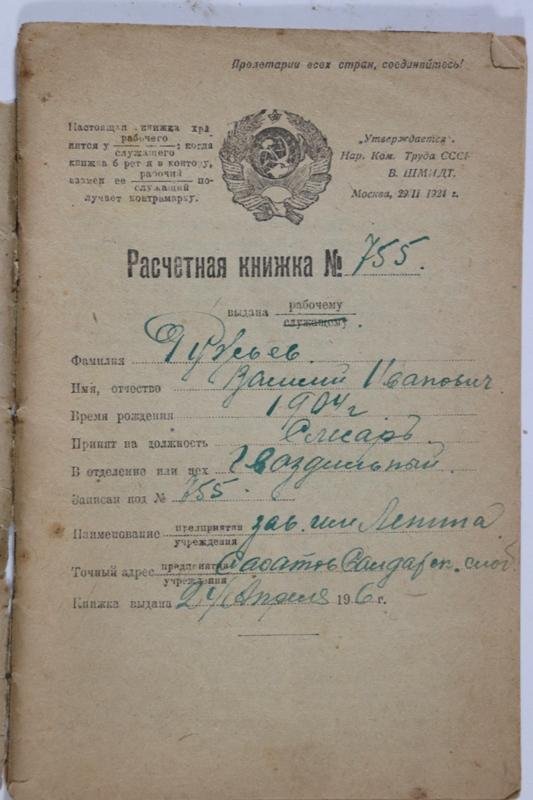 Пролетарии всех стран, соединяйтесь!
Настоящая книжка хра
нится у рабочего служащего; когда
книжка берется в контору,
взамен ее рабочий служащий по-
лучает контрамарку.
„Утверждается".
Нар. Ком. Труда СССР
В. ШМИДТ.
Москва, 29/II 1924 г.
Расчетная книжка № 755.
выдана рабочему служащому.
Фамилия
Имя, отчество Василий Иванович
Время рождения 1904 г
Принят на должность Слесарь
В отделение или цех Гвоздильный.
Записан под № 755.
Наименование предприятия учреждения зав. им Ленина
Точный адрес предприятия учреждения Саратов
Книжка выдана Апреля 1926 г.